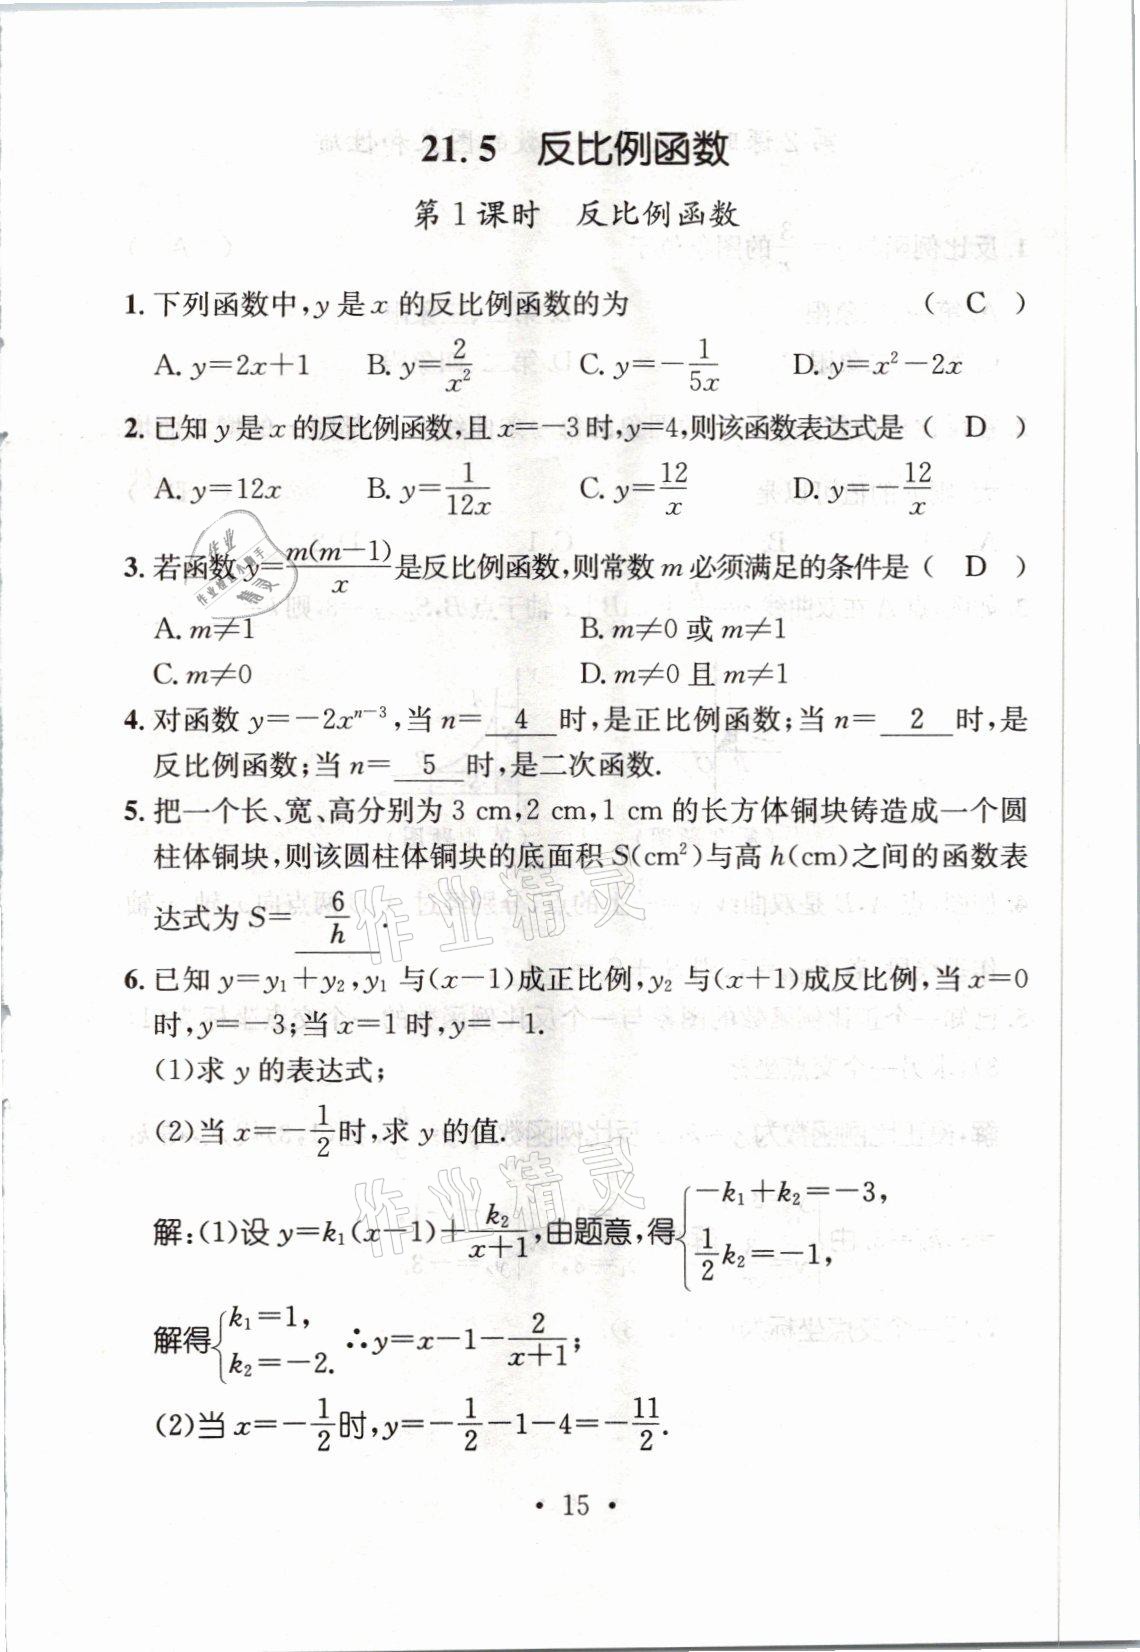 21.5 反比例函数
第1课时 反比例函数
1. 下列函数中,y是x的反比例函数的为 ( C )
A. y=2x+1 B. y=2/x² C. y=-1/5x D. y=x²-2x
2. 已知y是x的反比例函数,且x=-3时,y=4,则该函数表达式是 ( D )
A. y=12x B. y=1/12x C. y=12/x D. y=-12/x
3. 若函数y=m(m-1)/x是反比例函数,则常数m必须满足的条件是 ( D )
A. m≠1 B. m≠0或m≠1
C. m≠0 D. m≠0且m≠1
4. 对函数y=-2xⁿ⁻³,当n= 4 时,是正比例函数;当n= 2 时,是
反比例函数;当n= 5 时,是二次函数.
5. 把一个长、宽、高分别为3 cm,2 cm,1 cm的长方体铜块铸造成一个圆
柱体铜块,则该圆柱体铜块的底面积S(cm²)与高h(cm)之间的函数表
达式为S= 6/h .
6. 已知y=y₁+y₂,y₁与(x-1)成正比例,y₂与(x+1)成反比例,当x=0
时,y=-3;当x=1时,y=-1.
(1)求y的表达式;
(2)当x=-1/2时,求y的值.
解:(1)设y=k₁(x-1)+k₂/(x+1),由题意,得{-k₁+k₂=-3, 1/2k₂=-1,
解得{k₁=1, k₂=-2. ∴y=x-1-2/(x+1);
(2)当x=-1/2时,y=-1/2-1-4=-11/2.
• 15 •
作业精灵
作业精灵
作业
精灵